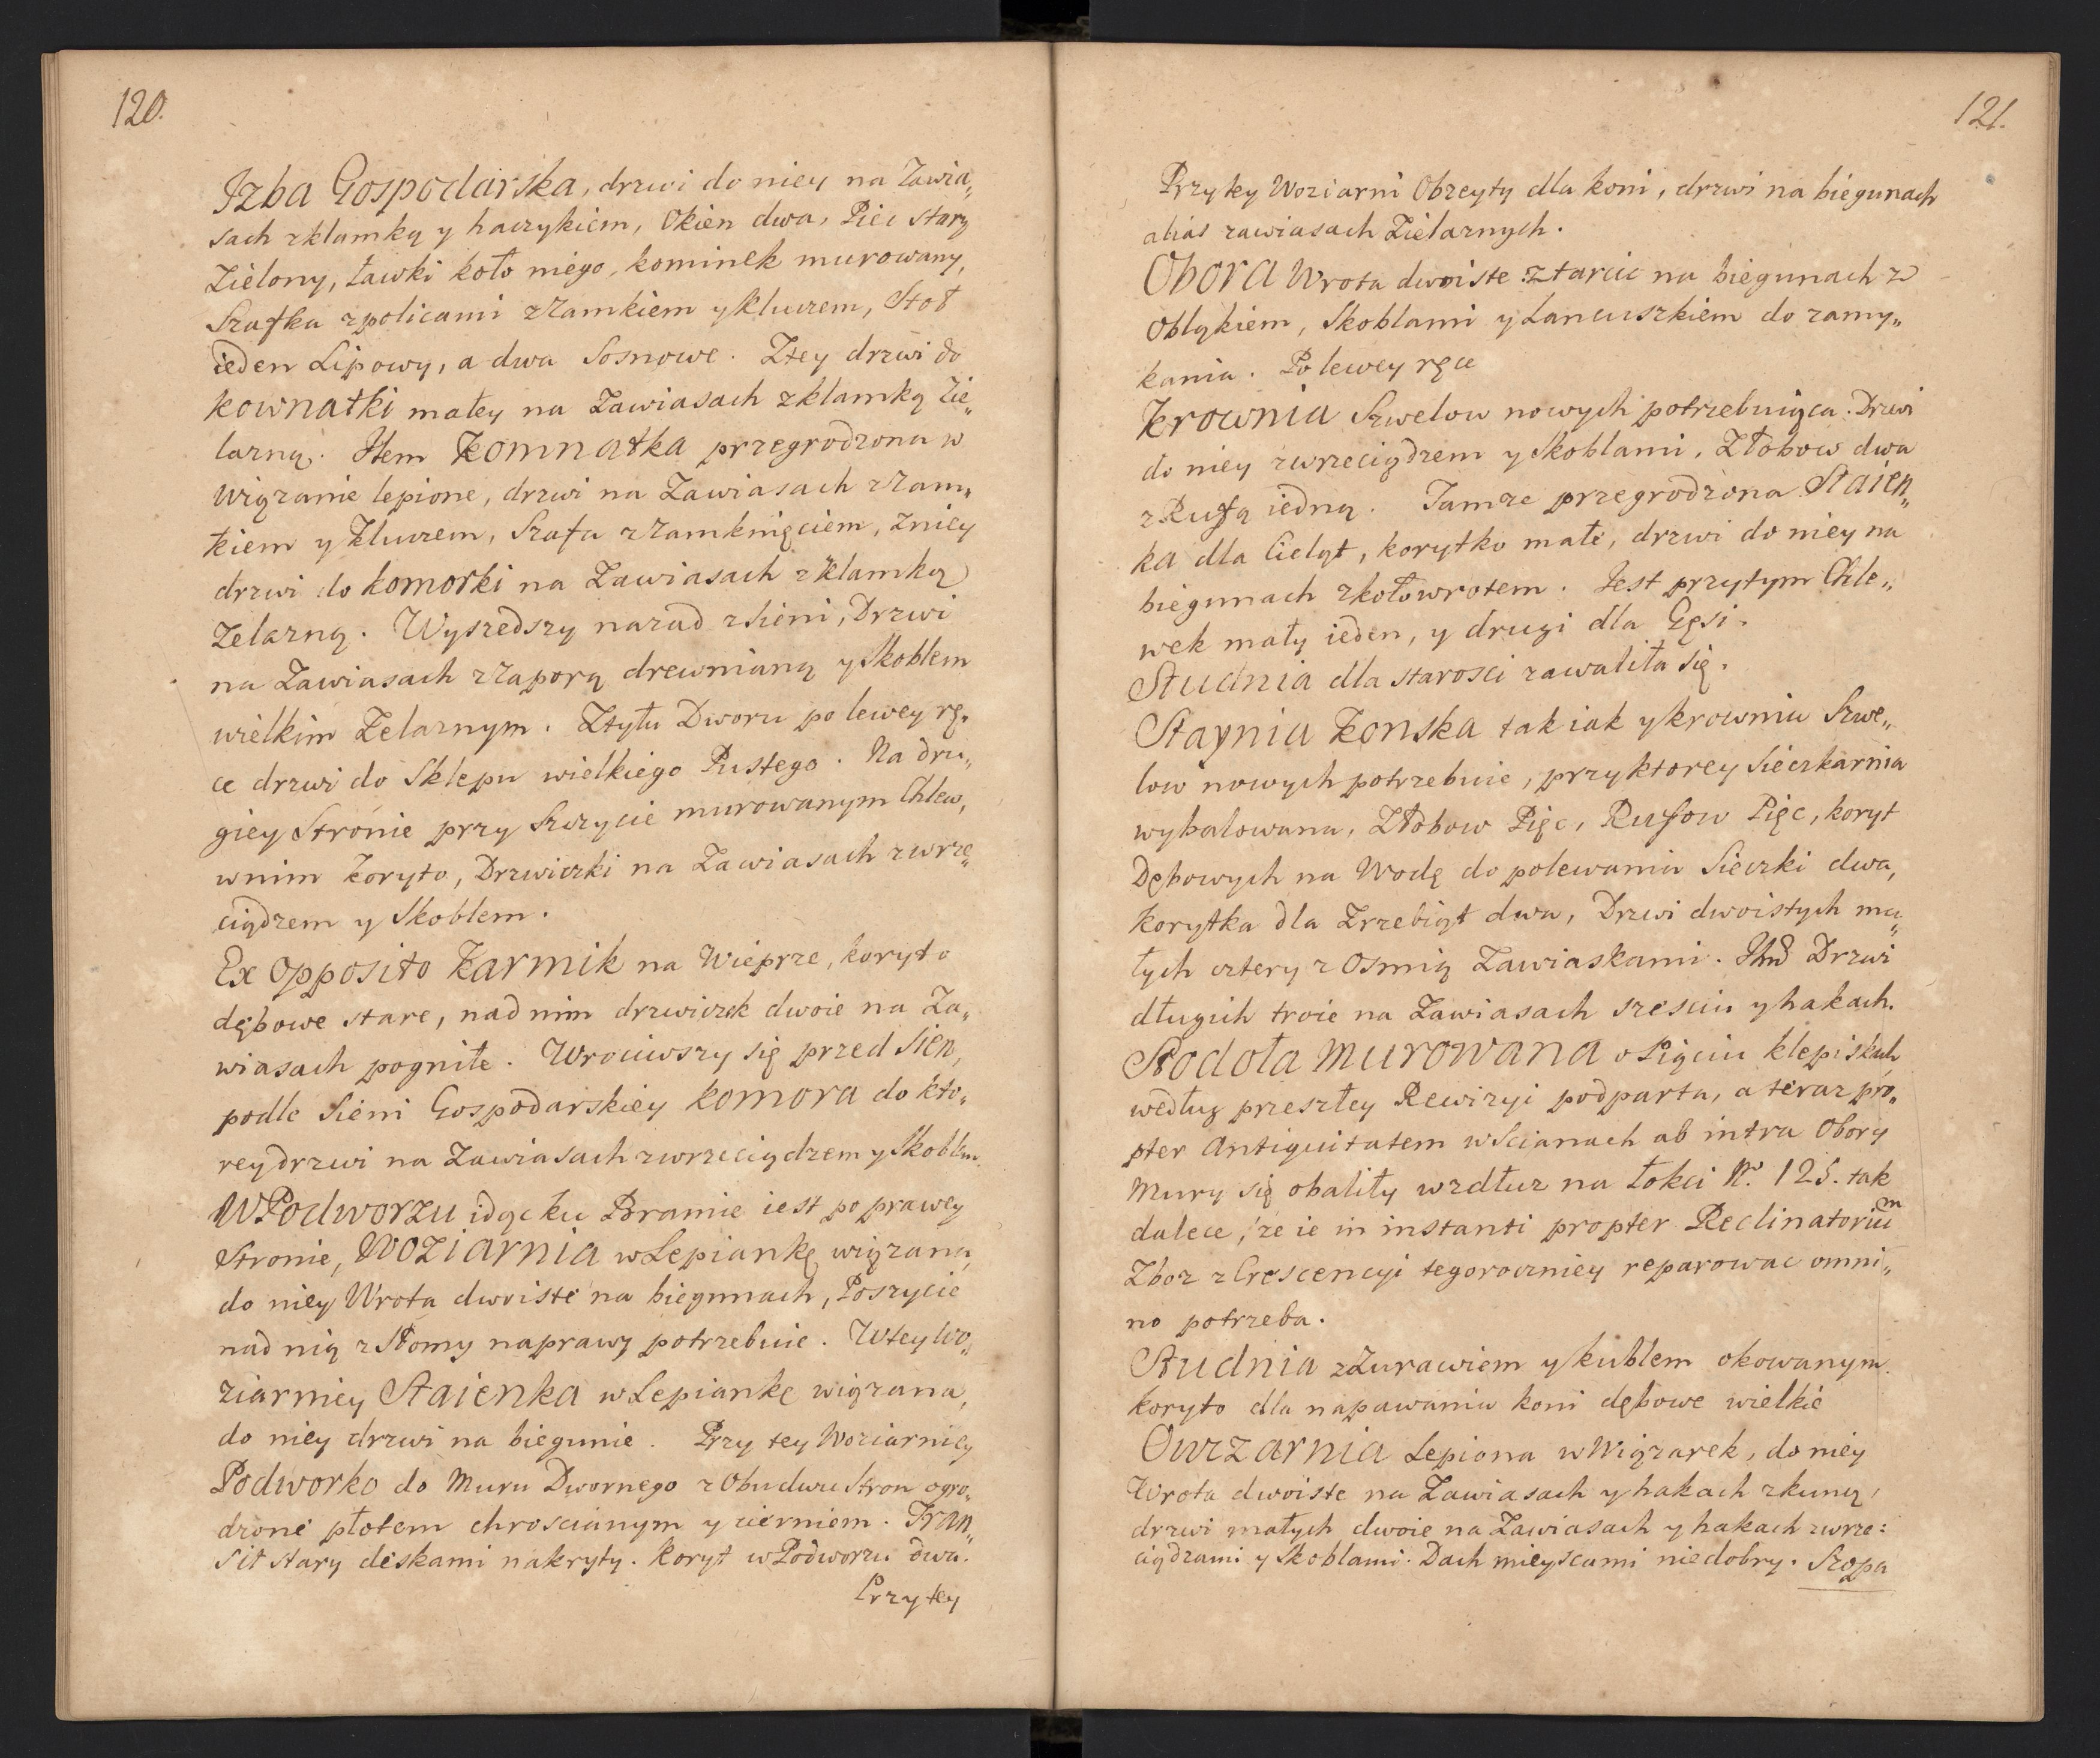 120.
Izba Gospodarska, drzwi do niey na Zawia„
sach z klamką y haczykiem, Okien dwa, Piec stary
Zielony, ławki koło niego, kominek murowany,
Szafka z policami z Zamkiem y kluczem, Stoł
ieden Lipowy, a dwa Sosnowe. Z tey drzwi do
kownatki małey na Zawiasach z klamką Że„
lazną. Item Komnatka przegrodzona w
Wiązanie lepione, drzwi na Zawiasach z Zam„
kiem y Kluczem, Szafa z Zamknięciem, z niey
drzwi do komorki na Zawiasach z Klamką
Zelazną. Wyszedszy nazad z sieni, Drzwi
na Zawiasach z Zaporą drewnianą y Skoblem
wielkim Zelaznym. Z tyłu Dworu po lewey rę„
ce drzwi do Sklepu wielkiego Pustego. Na dru„
giey Stronie przy Szczycie murowanym Chlew,
w nim Koryto, Drzwiczki na Zawiasach z wrze„
ciądzem y Skoblem.
Ex Opposito Karmik na Wieprze, koryto
dębowe stare, nad nim drzwiczek dwoie na Za„
wiasach pogniłe. Wrociwszy się przed Sien,
podle Sieni Gospodarskiey komora do kto„
rey drzwi na Zawiasach z wrzeciądzem y Skoblem.
W Podworzu idąc ku Bramie iest po prawey
Stronie, Woziarnia w Lepiankę wiązana,
do niey Wrota dwoiste na biegunach, Poszycie
nad nią z Słomy naprawy potrzebuie. W tey Wo„
ziarniey Staienka w Lepiankę wiązana,
do niey drzwi na biegunie. Przy tey Woziarniey
Podworko do Muru Dwornego z Obudwu Stron ogro„
dzone płotem chroscianym y cierniem. Tran„
sit stary deskami nakryty. Koryt w Podworzu dwa.
Przy tey
121.
Przy tey Woziarni Obzeyty dla koni, drzwi na biegunach
alias zawiasach Zielaznych.
Obora Wrota dwoiste z tarcic na biegunach z
Obłąkiem, Skoblami y Lancuszkiem do zamy„
kania. Po lewey ręce
Krownia Szwelow nowych potrzebuiąca. Drzwi
do niey z wrzeciądzem y Skoblami, Złobow dwa
z Rufą iedną. Tamze przegrodzona Staien„
ka dla Cieląt, korytko małe, drzwi do niey na
biegunach z kołowrotem. Iest przytym Chle„
wek mały ieden, y drugi dla Gęsi.
Studnia dla starosci zawaliła się.
Staynia Konska tak iak y krownia Szwe„
low nowych potrzebuie, przy ktorey Sieczkarnia
wybalowana, Złobow Pięc, Rufow Pięc, koryt
Dębowych na Wodę do polewania Sieczki dwa,
Korytka dla Zrzebiąt dwa, Drzwi dwoistych ma„
łych cztery z Osmią Zawiaskami. Item Drzwi
długich troie na Zawiasach szesciu y hakach.
Stodoła murowana o Pięciu klepiskach
według przeszłey Rewizyi podparta, a teraz pro„
pter Antiquitatem w Scianach ab intra Obory
Mury się obaliły wzdłuz na Łokci No. 125. tak
dalece, ze ie in instanti propter Reclinatorium
Zboz z Crescencyi tegoroczniey reparowac omni„
no potrzeba.
Studnia z Zurawiem y kublem okowanym.
Koryto dla napawania koni dębowe wielkie
Owczarnia Lepiona w Wiązarek, do niey
Wrota dwoiste na Zawiasach y hakach z kuną,
drzwi małych dwoie na Zawiasach y hakach z wrze:
ciądzami y Skoblami. Dach mieyscami niedobry. Szopa